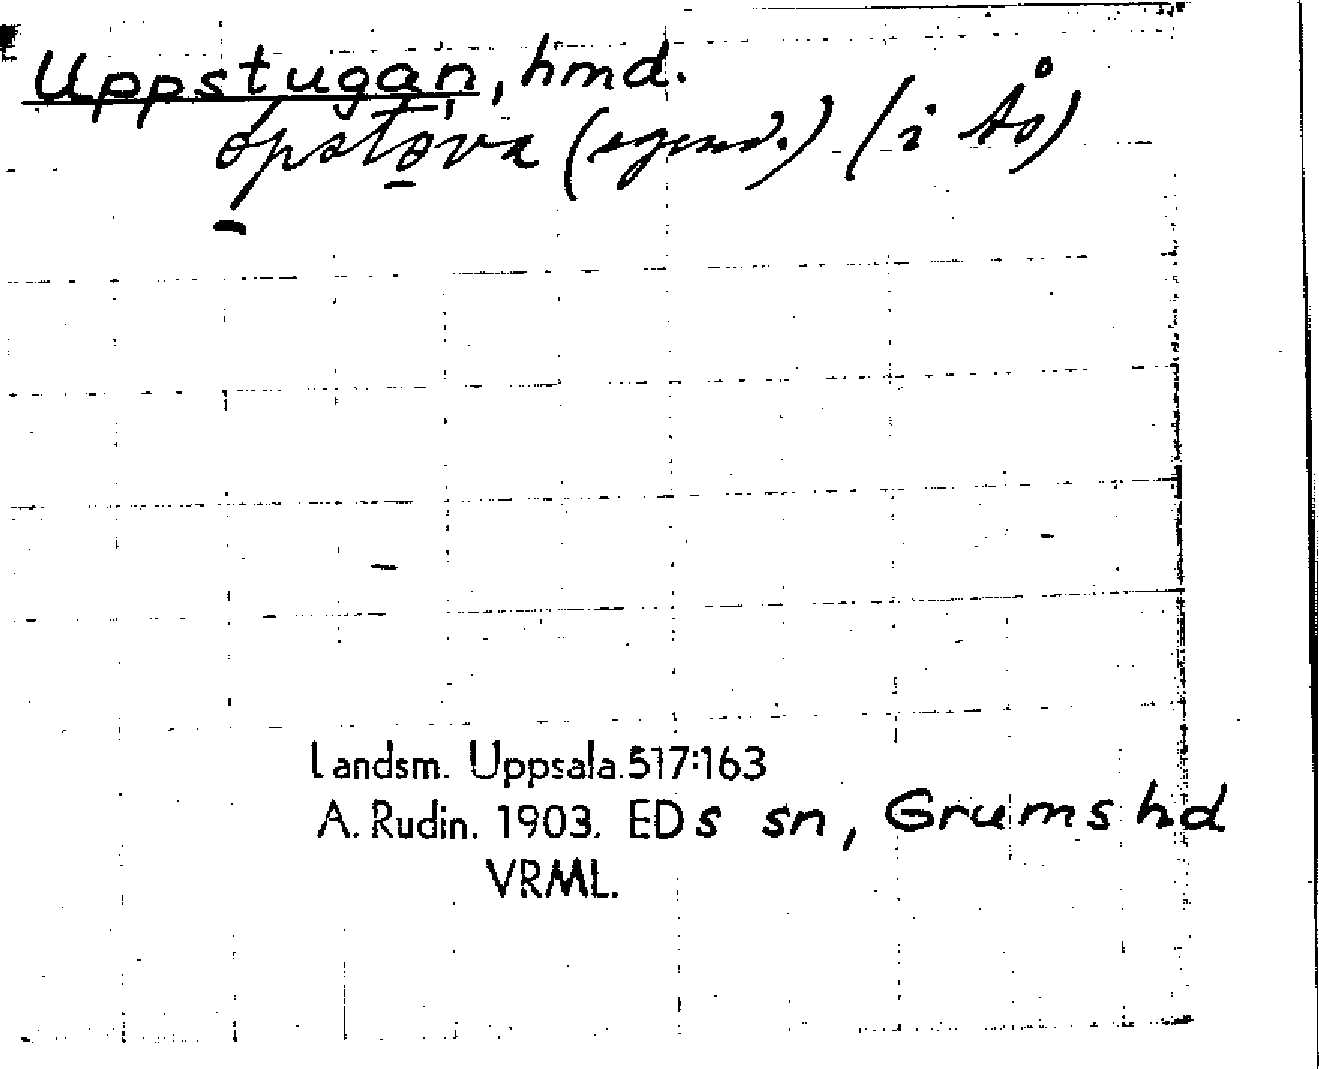 Uppstugan, hmd.
opstova (egend.) (i Ås)
Landsm. Uppsala.517:163
A. Rudin. 1903. EDs sn, Grums hd
VRML.